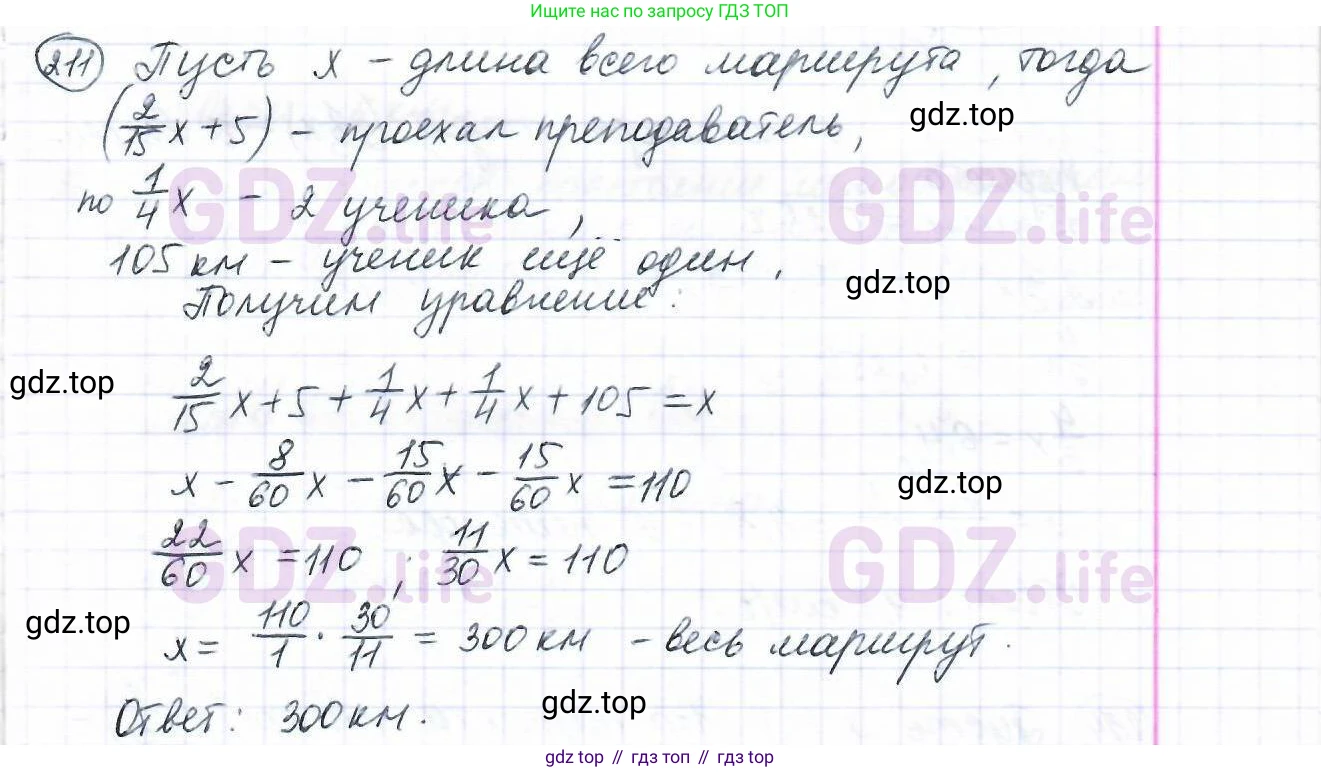 Ищите нас по запросу ГДЗ ТОП
211 Пусть x – длина всего маршрута, тогда
(2/15 x + 5) – проехал преподаватель,
gdz.top
по 1/4 x – 2 ученика,
GDZ.life GDZ.life
105 км – ученик ещё один.
gdz.top
Получим уравнение:
gdz.top
2/15 x + 5 + 1/4 x + 1/4 x + 105 = x
x - 8/60 x - 15/60 x - 15/60 x = 110
gdz.top
22/60 x = 110 ; 11/30 x = 110
GDZ.life GDZ.life
gdz.top
x = 110/1 · 30/11 = 300 км – весь маршрут.
gdz.top
Ответ: 300 км.
gdz top // гдз топ // gdz top